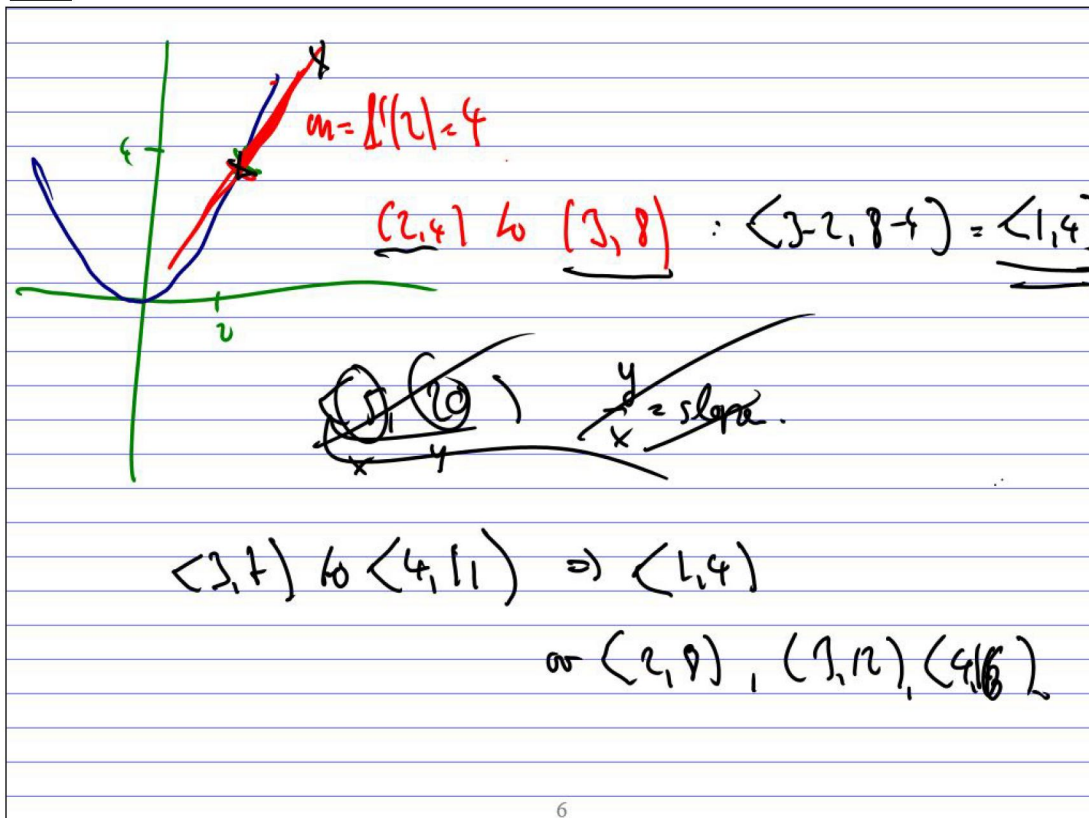 4
m = f'(2) = 4
(2,4) to (3,8) : <3-2, 8-4> = <1,4>
2
<5, 20>
x y
y/x = slope.
<3,7> to <4,11> => <1,4>
or <2,8>, <3,12>, <4,16>.
6